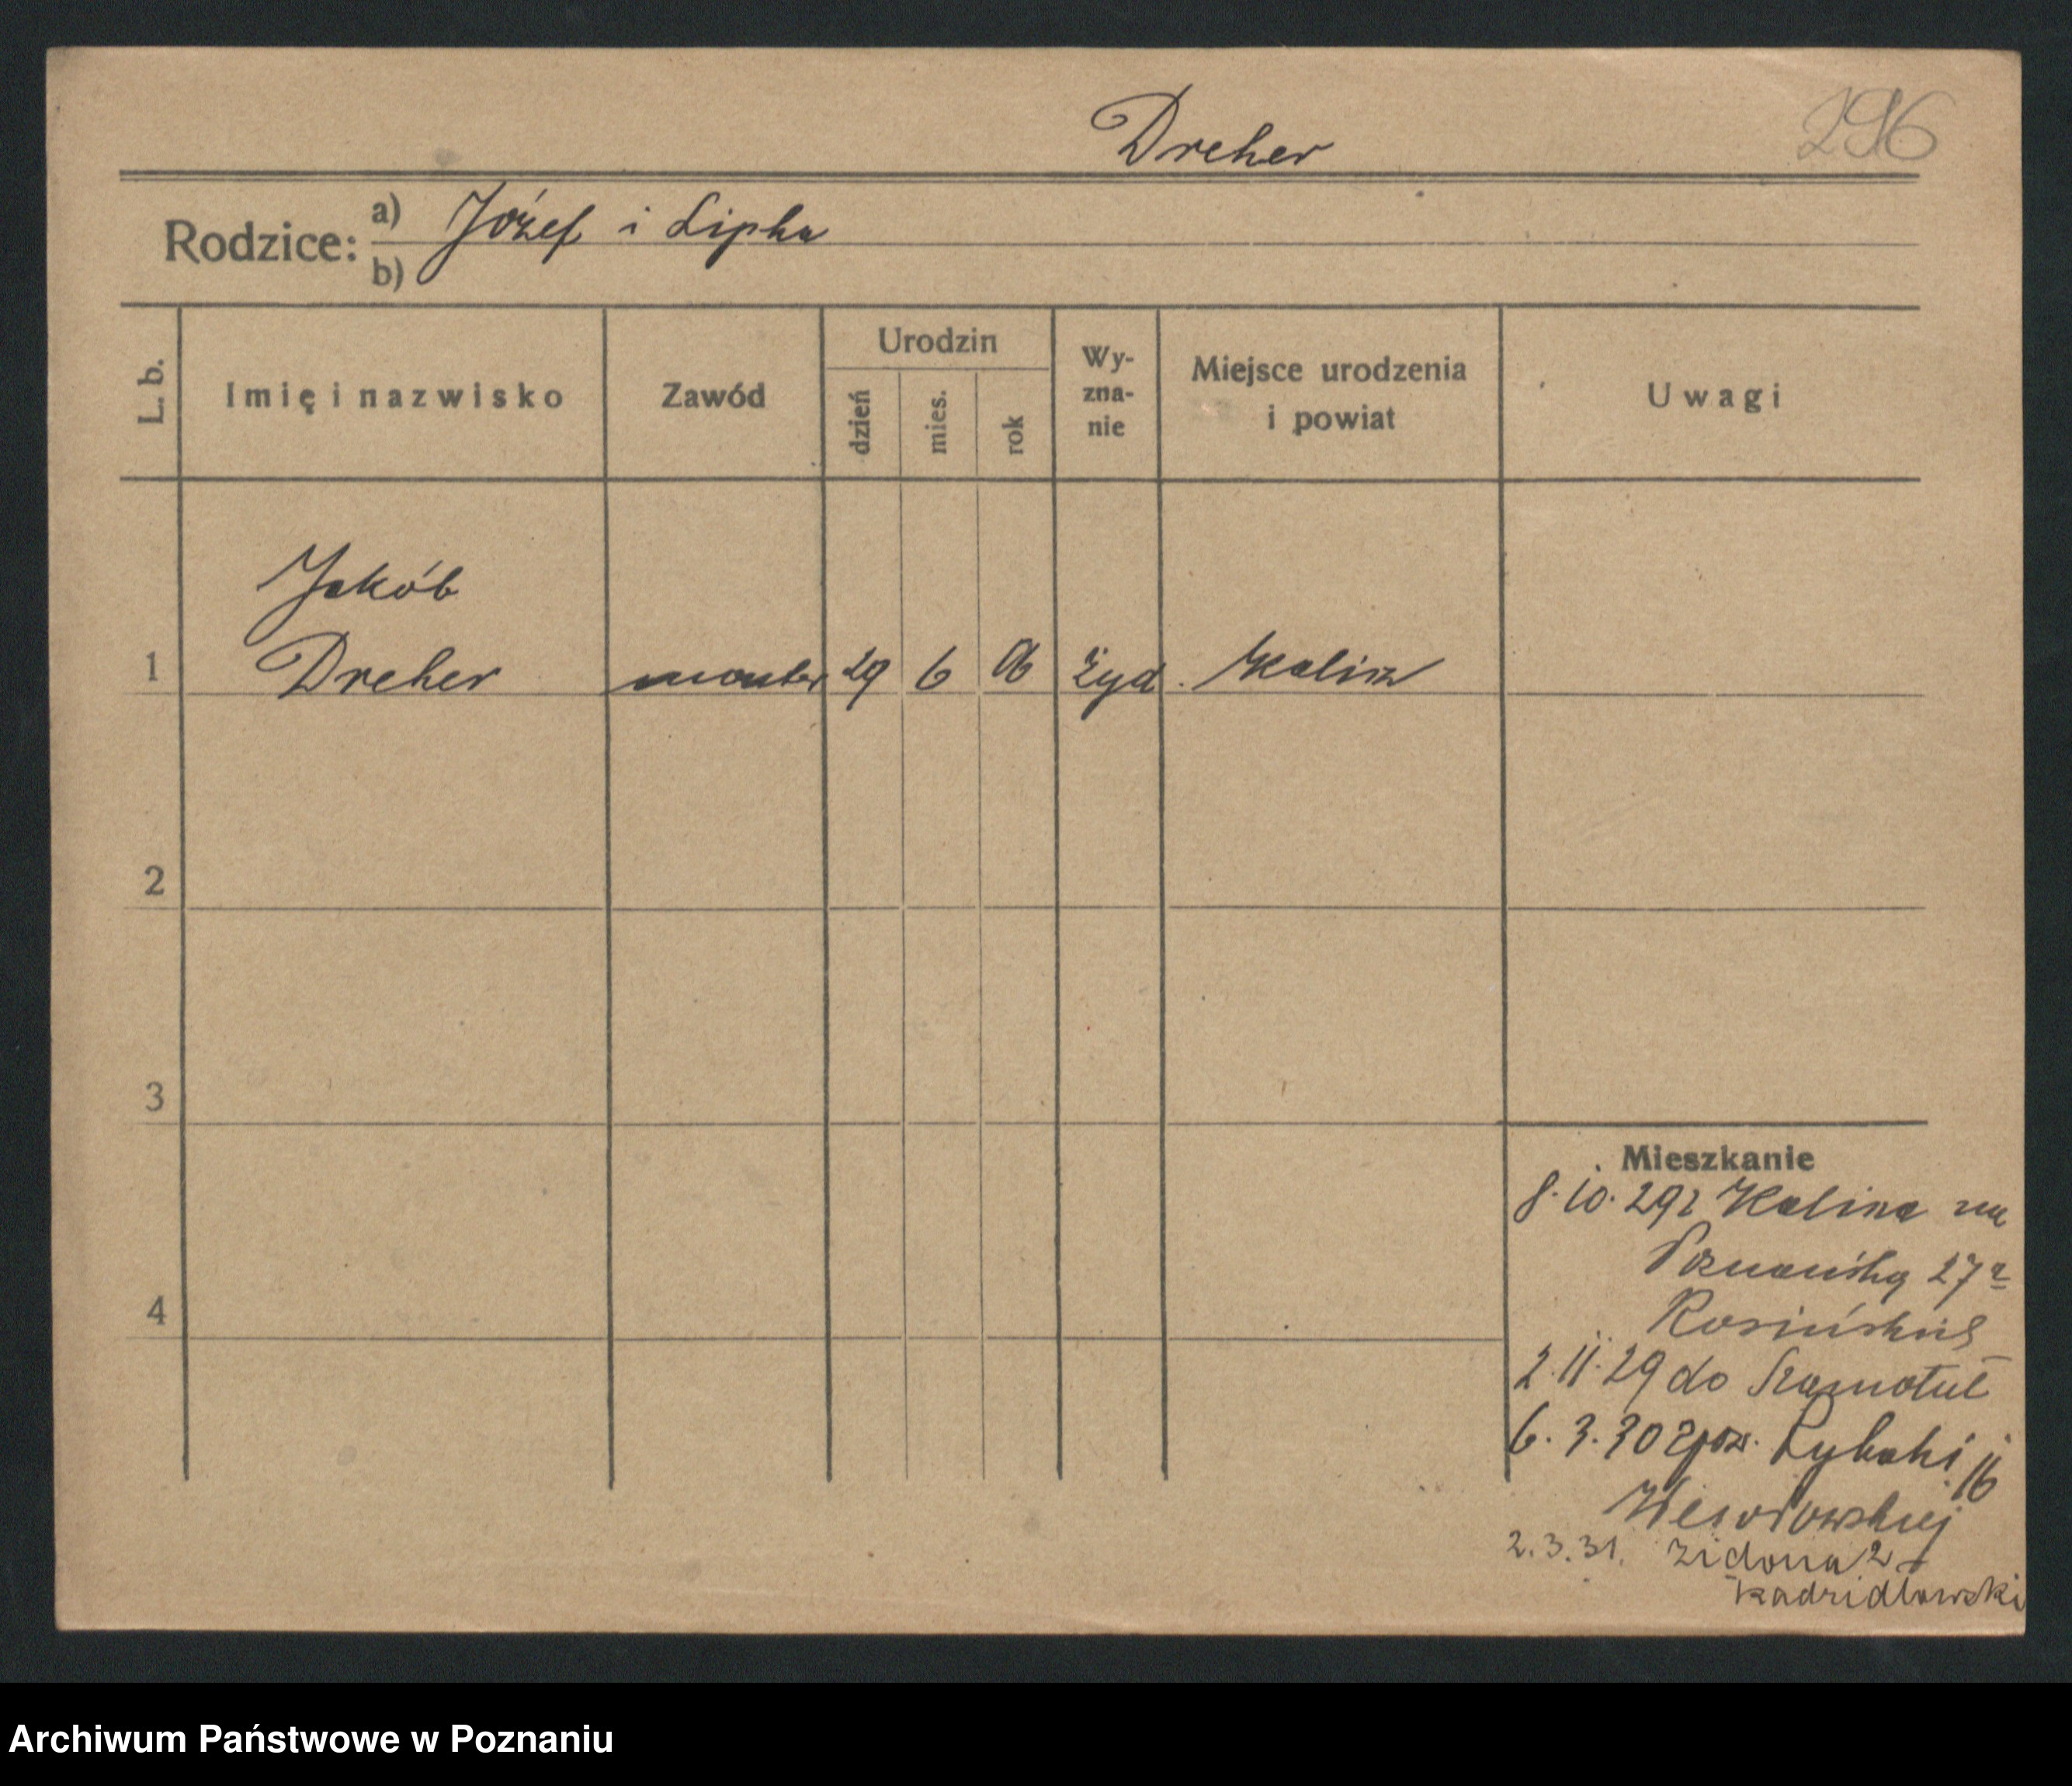 Dreher
296
Rodzice: a) Józef i Lipka
b)
L. b.
Imię i nazwisko
Zawód
Urodzin
dzień
mies.
rok
Wy-
zna-
nie
Miejsce urodzenia
i powiat
Uwagi
Jakób
1 Dreher monter 29 6 06 żyd. Kalisz
2
3
4
Mieszkanie
8.10.29 z Kalisza na
Poznańską 27
2.11.29 do Szamotuł
6.3.30 Rybaki 16
Wesołowskiej
2.3.31. 2
Archiwum Państwowe w Poznaniu